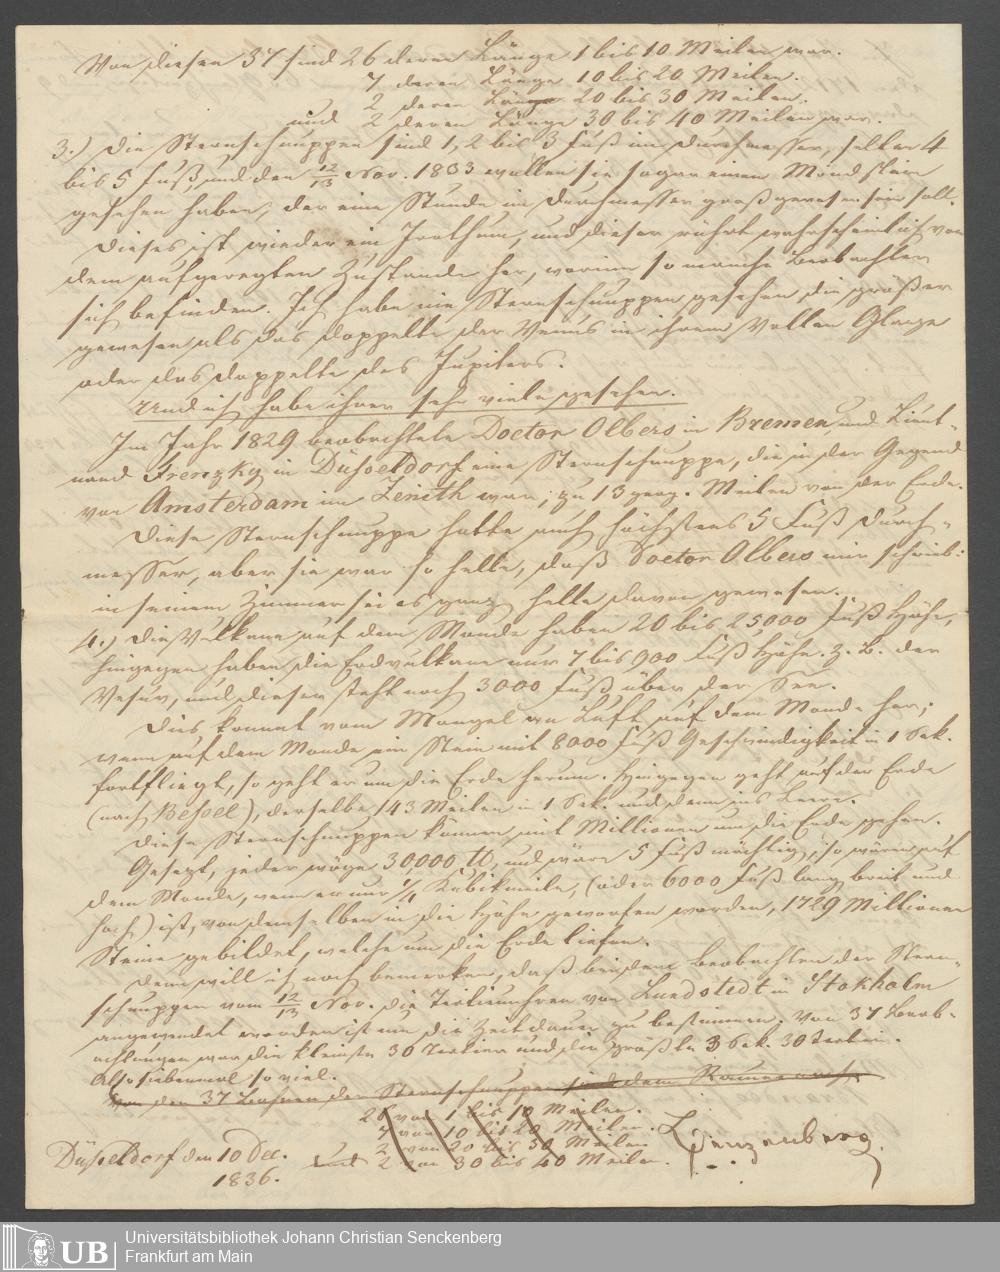 Von diesen 37 sind 26 deren Länge 1 bis 10 Meilen war.
7 deren Länge 10 bis 20 Meilen.
2 deren Länge 20 bis 30 Meilen.
und 2 deren Länge 30 bis 40 Meilen war.
3.) Die Sternschnuppen sind 1, 2 bis 3 Fuß im Durchmesser, selten 4
bis 5 Fuß, und den 12/13 Nov. 1833 wollen sie sogar einen Mondstein
gesehen haben, der eine Stunde im Durchmesser groß gewesen sein soll.
Dieses ist wieder ein Irrthum, und dieser rührt wahrscheinlich von
dem aufgeregten Zustande her, worinn so manche Beobachter
sich befinden. Ich habe nie Sternschnuppen gesehen die größer
gewesen als das doppelte der Venus in ihrem vollen Glanze
oder das doppelte des Jupiters.
Und ich habe ihrer sehr viele gesehen.
Im Jahr 1829 beobachtete Doctor Olbers in Bremen, und Lieut-
nand Frenzky in Düsseldorf eine Sternschnuppe, die in der Gegend
von Amsterdam im Zenith war, zu 13 geog. Meilen von der Erde.
Diese Sternschnuppe hatte auch höchstens 5 Fuß Durch-
messer, aber sie war so helle, daß Doctor Olbers mir schrieb:
in seinem Zimmer sei es ganz helle davon gewesen.
4.) Die Vulkane auf dem Monde haben 20 bis 25000 Fuß Höhe,
hingegen haben die Erdvulkane nur 7 bis 900 Fuß Höhe. z. B. der
Vesuv, und dieser steht noch 3000 Fuß über der See.
Dies kommt vom Mangel an Luft auf dem Monde her;
wenn auf dem Monde ein Stein mit 8000 Fuß Geschwindigkeit in 1 Sek.
fortfliegt, so geht er um die Erde herum. Hingegen geht auf der Erde
(nach Bessel), derselbe 143 Meilen in 1 Sek. und dann ins Leere.
Diese Sternschnuppen können mit Millionen um die Erde gehen.
Gesezt, jeder wöge 30,000 ℔, und wäre 5 Fuß mächtig, so wären auf
dem Monde, wenn er nur 1/4 Kubikmeile, (oder 6000 Fuß lang, breit und
hoch) ist, von demselben in die Höhe geworfen worden, 1729 Millionen
Steine gebildet, welche um die Erde liefen.
Dann will ich noch bemerken, daß bei dem Beobachten der Stern-
schnuppen vom 12/13 Nov. die Tertienuhren von Lundstedt in Stokholm
angewendet worden ist um die Zeitdauer zu bestimmen. Von 37 Beob-
achtungen war die kleinste 30 Tertien und die größte 3 Sek. 30 Tertien.
Also siebenmal so viel.
Von den 37 Bahnen der Sternschnuppen sind dem Raume nach
26 von 1 bis 10 Meilen.
7 von 10 bis 20 Meilen.
2 von 20 bis 30 Meilen
und 2 von 30 bis 40 Meilen.
Benzenberg.
Düsseldorf den 10 Dec.
1836.
UB
Universitätsbibliothek Johann Christian Senckenberg
Frankfurt am Main